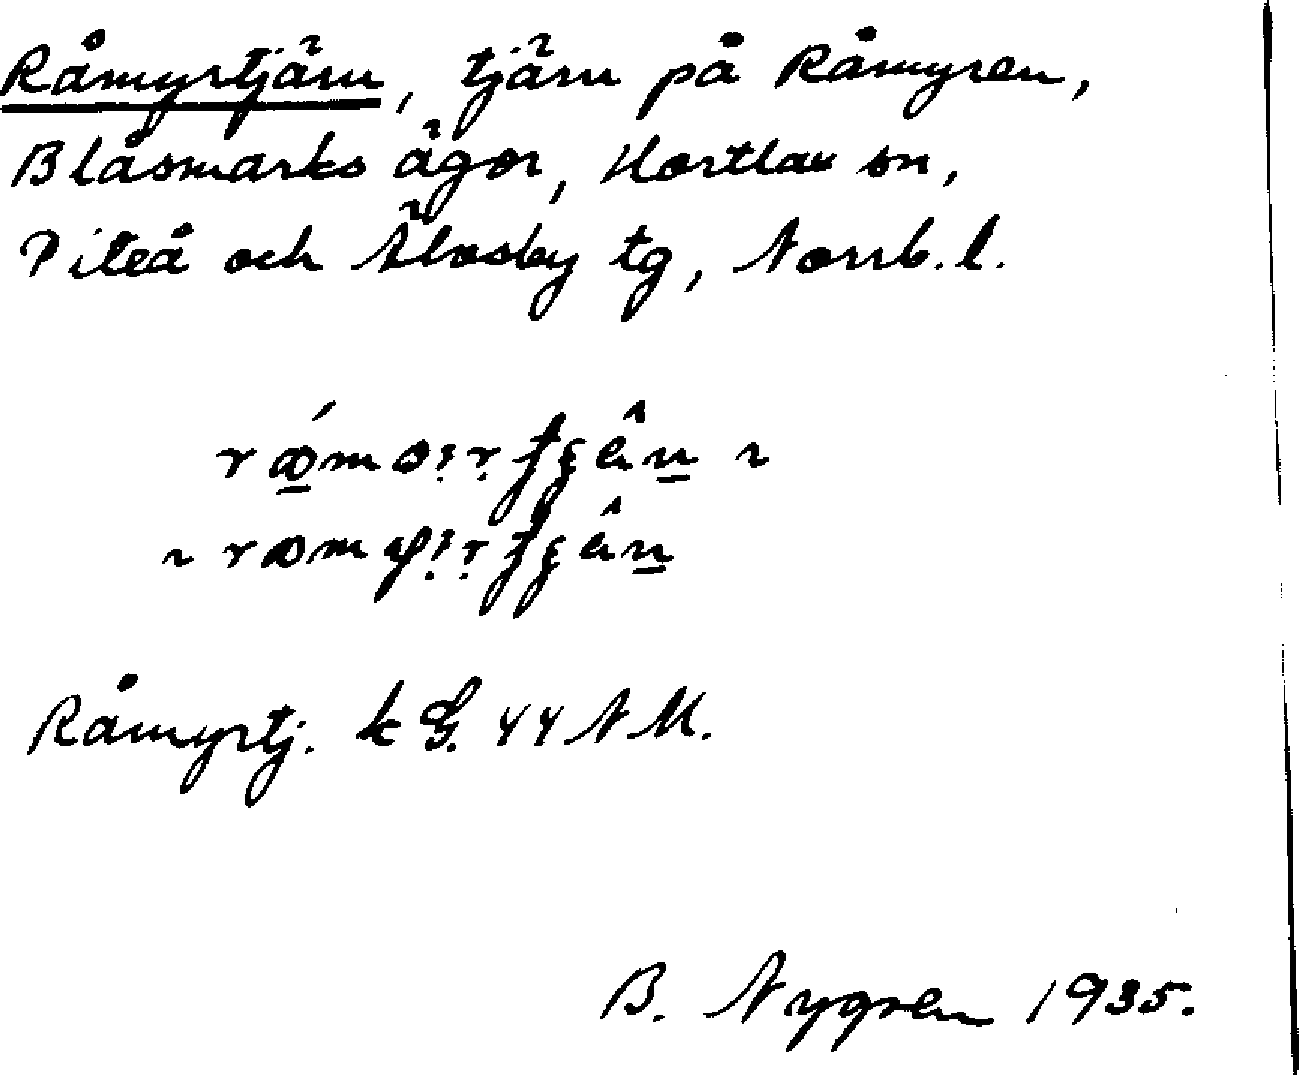 Råmyrtjärn, tjärn på Råmyren,
Blåsmarks ägor, Hortlax sn,
Piteå och Älvsby tg, Norrb. l.
Råmyrtj. k G. 44 NM.
B. Nygren 1935.